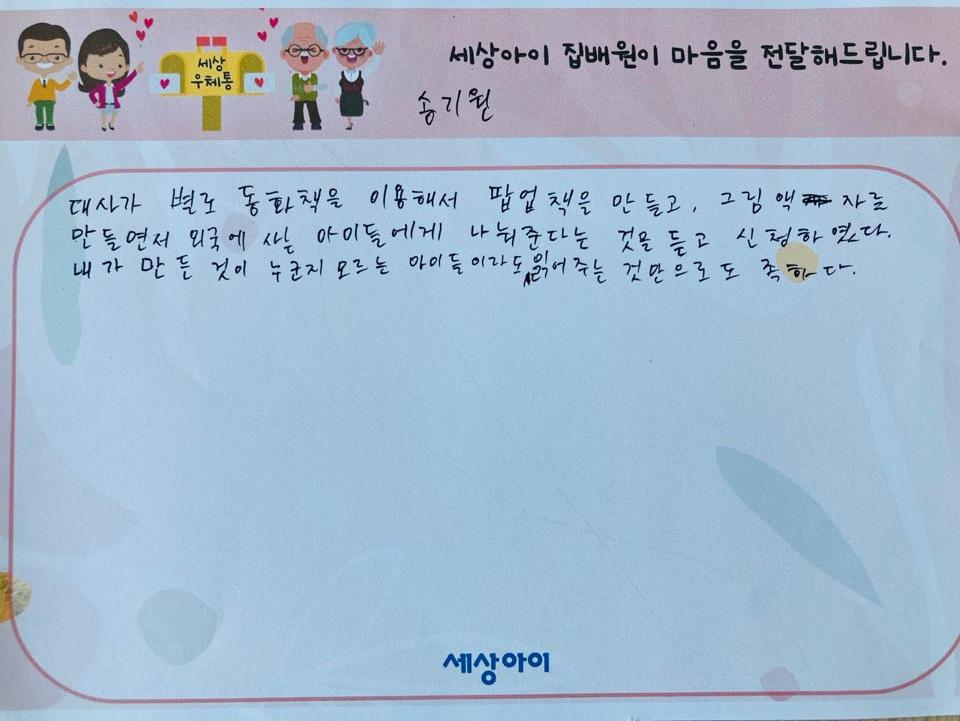 세상
우체통
세상아이 집배원이 마음을 전달해드립니다.
송기원
대사가 별로 동화책을 이용해서 팝업 책을 만들고, 그림 액 자를
만들면서 외국에 사는 아이들에게 나눠준다는 것을 듣고 신청하였다.
내가 만든 것이 누군지 모르는 아이들이라도 읽어주는 것만으로도 족하다.
세상아이